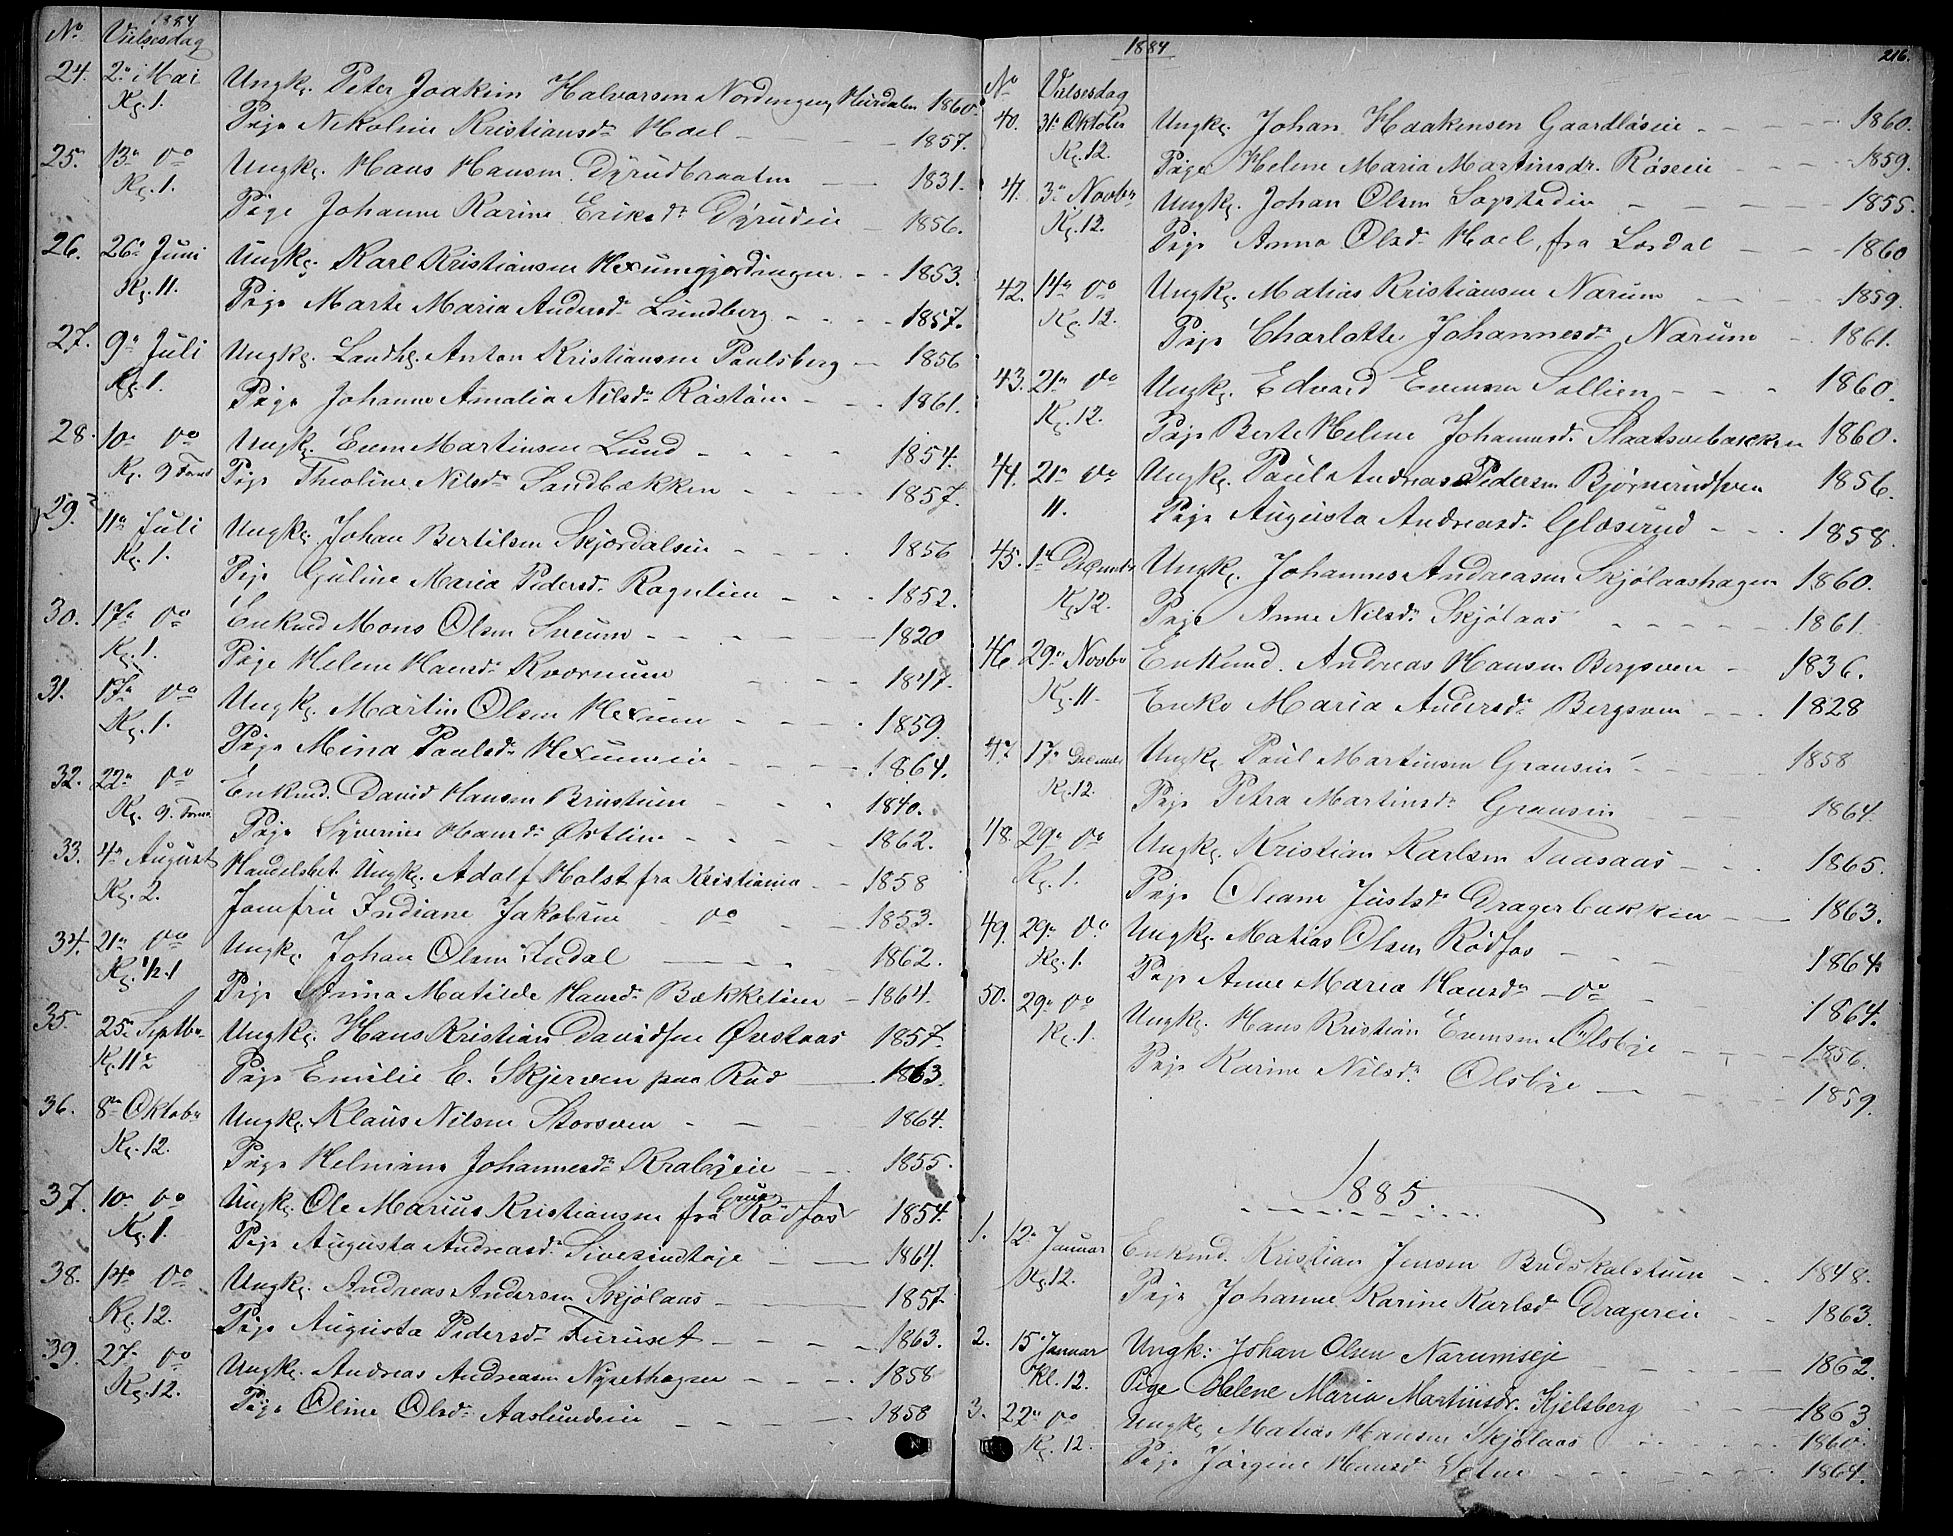 1884
No Vielsesdag
24. 2den Mai Ungk. Peter Joakim Halvorsen Nordengen, Hurdalen 1860.
Kl. 1. Pige Nikoline Kristiansdr Hoel 1857.
25. 13de do Ungk. Hans Hansen Dyrudbraaten 1831.
Kl. 1. Pige Johanne Karine Eriksdr Dyrudeie 1856.
26. 26de Juni Ungk. Karl Kristiansen Hexumgjordingen 1853.
Kl. 11. Pige Marte Maria Andersdr Lundberg 1857.
27. 9de Juli Ungk. Landh. Anton Kristiansen Paulsberg 1856
Kl. 1. Pige Johanne Amalia Nilsdr Røstøen 1861.
28. 10de do Ungk. Even Martinsen Lund 1854.
Kl. 9 Form Pige Theoline Nilsdr Sandbakken 1857.
29. 11te Juli Ungk. Johan Bertilsen Skjordalseie 1856
Kl. 1. Pige Guline Maria Pedersdr Rognlien 1852.
30. 17de do Enkmd Mons Olsen Sveum 1820
Kl. 1. Pige Helene Hansdr Kværnum 1847.
31. 17de do Ungk. Martin Olsen Hexum 1859.
Kl. 1. Pige Mina Paulsdr Hexumeie 1864.
32. 22de do Enkmd. David Hansen Brustuen 1840.
Kl. 9. Form Pige Syverine Hansdr Østlien 1862.
33. 4de August Handelsbet. Ungk. Adolf Holst fra Kristiania 1858
Kl. 2. Jomfru Indiane Jakobsen do 1853.
34. 21de do Ungk. Johan Olsen Indal 1862.
Kl. 1/2 1 Pige Anna Matilde Hansdr Bækkelien 1864.
35. 25de Septbr Ungk. Hans Kristian Davidsen Øvstaas 1857.
Kl. 11 1/2 Pige Emilie E. Skjerven paa Rud 1863.
36. 8de Oktobr Ungk. Klaus Nilsen Storsveen 1864.
Kl. 12. Pige Helmine Johannesdr Krabyeie 1855.
37. 10de do Ungk. Ole Marius Kristiansen fra Grua Rødfos 1854.
Kl. 1. Pige Augusta Andreasdr Sivesindhøje 1864.
38. 14de do Ungk. Andreas Andersen Skjølaas 1857.
Kl. 12. Pige Augusta Pedersdr Furuset 1863.
39. 27de do Ungk. Andreas Andreasen Nysethagen 1858
Kl. 12. Pige Oline Olsdr Aaslundeie 1858
1884
216.
No Vielsesdag
40. 31te Oktober Ungk. Johan Haakensen Gaardløseie 1860.
Kl. 12. Pige Helene Maria Martinsdr. Røseeie 1859.
41. 3de Novbr Ungk. Johan Olsen Sogstadeie 1855.
Kl. 12. Pige Anna Olsdr Hoel, fra Lærdal 1860
42. 14de do Ungk. Matias Kristiansen Narum 1859.
Kl. 12. Pige Charlotte Johannesdr Narum 1861.
43. 21de do Ungk. Edvard Evensen Sollien 1860.
Kl. 12. Pige Berte Helene Johannesdr Staatsvebakken 1860.
44. 21de do Ungk. Paul Andreas Pedersen Bjørnerudsveen 1856.
11. Pige Augusta Andreasdr Glæserud 1858.
45. 1ste Decembr Ungk. Johannes Andreasen Skjølaashagen 1860.
Kl. 12. Pige Anne Nilsdr Skjølaas 1861.
46. 29de Novbr Enkemd. Andreas Hansen Bergsveen 1836.
Kl. 11. Enke Maria Andersdr Bergsveen 1828
47. 17de Decembr Ungk. Paul Martinsen Granseie 1858
Kl. 12. Pige Petra Martinsdr Granseie 1864.
48. 29de do Ungk. Kristian Karlsen Tuasaas 1865.
Kl. 1. Pige Oleane Justsdr Dragerbakken 1863.
49. 29de do Ungk. Matias Olsen Rødfos 1864.
Kl. 1. Pige Anne Maria Hansdr do 1864.
50. 29de do Ungk. Hans Kristian Evensen Olsbye 1856.
Kl. 1. Pige Karine Nilsdr Olsbye 1859.
1885.
1. 12te Januar Enkmd. Kristian Jensen Budskalstuen 1848.
Kl. 12. Pige Johanne Karine Karlsdr Dragereie 1863.
2. 15de Januar Ungk: Johan Olsen Narumseje 1862.
Kl. 12. Pige Helene Maria Martinsdr. Kjelsberg 1863
3. 22de do Ungk. Matias Hansen Skjølaas 1860.
Kl. 12. Pige Jørgine Hansdr Sætne 1864.